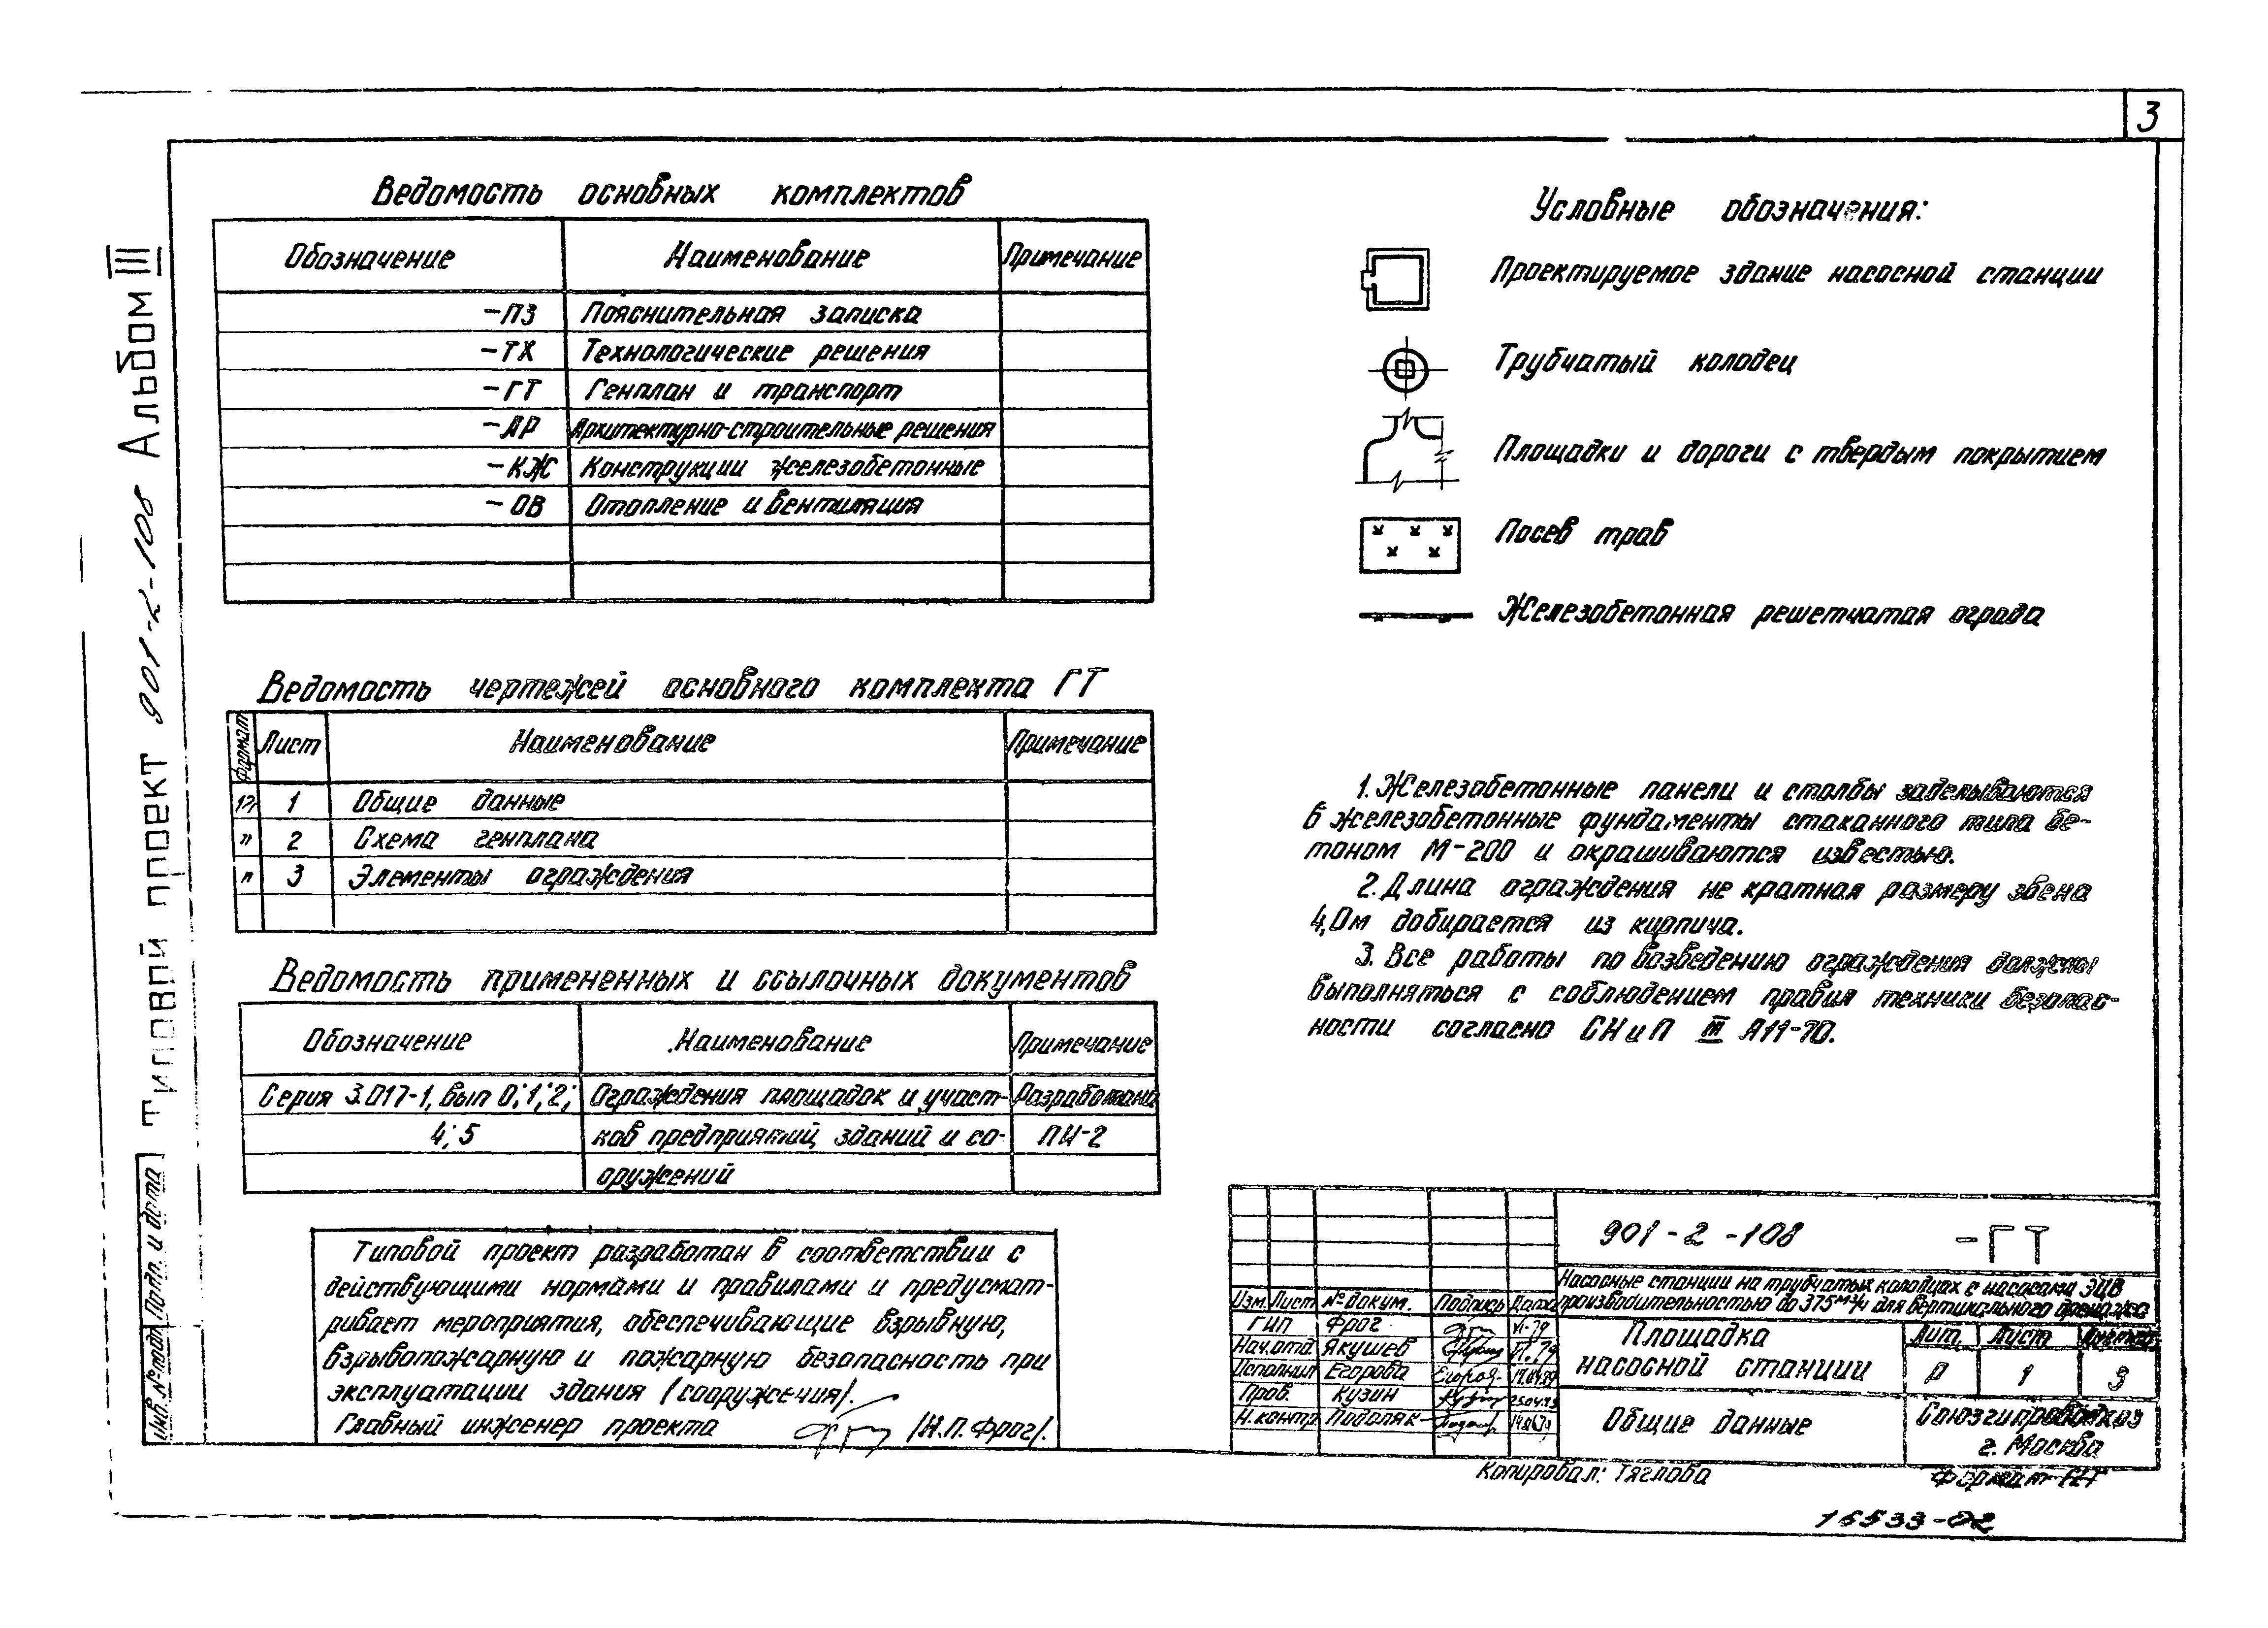 3
Альбом III
Типовой проект 901-2-108
Инв. № подл. Подп. и дата
Ведомость основных комплектов
Обозначение Наименование Примечание
-ПЗ Пояснительная записка
-ТХ Технологические решения
-ГТ Генплан и транспорт
-АР Архитектурно-строительные решения
-КЖ Конструкции железобетонные
-ОВ Отопление и вентиляция
Ведомость чертежей основного комплекта ГТ
Формат Лист Наименование Примечание
1 Общие данные
" 2 Схема генплана
" 3 Элементы ограждения
Ведомость примененных и ссылочных документов
Обозначение Наименование Примечание
Серия 3.017-1, вып 0; 1; 2; Ограждения площадок и участ- Разработана
4; 5 ков предприятий, зданий и со- ПИ-2
оружений
Типовой проект разработан в соответствии с
действующими нормами и правилами и предусмат-
ривает мероприятия, обеспечивающие взрывную,
взрывопожарную и пожарную безопасность при
эксплуатации здания (сооружения).
Главный инженер проекта /Н.П. Фрог/.
Условные обозначения:
Проектируемое здание насосной станции
Трубчатый колодец
Площадки и дороги с твердым покрытием
Посев трав
Железобетонная решетчатая ограда
1. Железобетонные панели и столбы заделываются
в железобетонные фундаменты стаканного типа бе-
тоном М-200 и окрашиваются известью.
2. Длина ограждения не кратная размеру звена
4,0м добирается из кирпича.
3. Все работы по возведению ограждения должны
выполняться с соблюдением правил техники безопас-
ности согласно СНиП III А11-70.
901-2-108 -ГТ
Насосные станции на трубчатых колодцах с насосами ЭЦВ
производительностью до 375 м³/ч для вертикального дренажа
Изм. Лист № докум. Подпись Дата
ГИП Фрог VI-79
Нач.отд. Якушев VI.79
Исполнил Егорова
Пров. Кузин
Н.контр. Подоляк
Площадка
насосной станции
Лит. Лист Листов
Р 1 3
Общие данные
Союзгипроводхоз
г. Москва
Копировал: Тяглова
Формат
16533-02